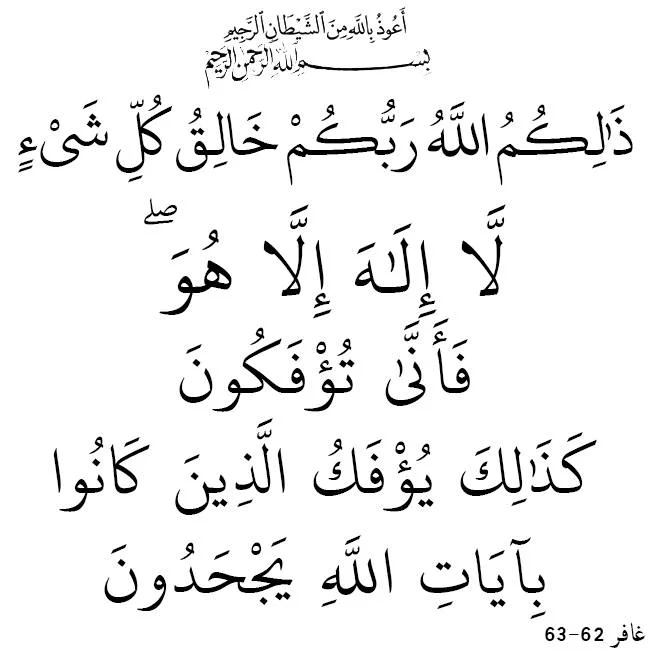 أَعُوذُ بِاللَّهِ مِنَ الشَّيْطَانِ الرَّجِيمِ
بِسْمِ اللَّهِ الرَّحْمَٰنِ الرَّحِيمِ
ذَٰلِكُمُ اللَّهُ رَبُّكُمْ خَالِقُ كُلِّ شَىْءٍ
لَّا إِلَـٰهَ إِلَّا هُوَ ۖ
فَأَنَّىٰ تُؤْفَكُونَ
كَذَٰلِكَ يُؤْفَكُ الَّذِينَ كَانُوا
بِآيَاتِ اللَّهِ يَجْحَدُونَ
غافر 62-63